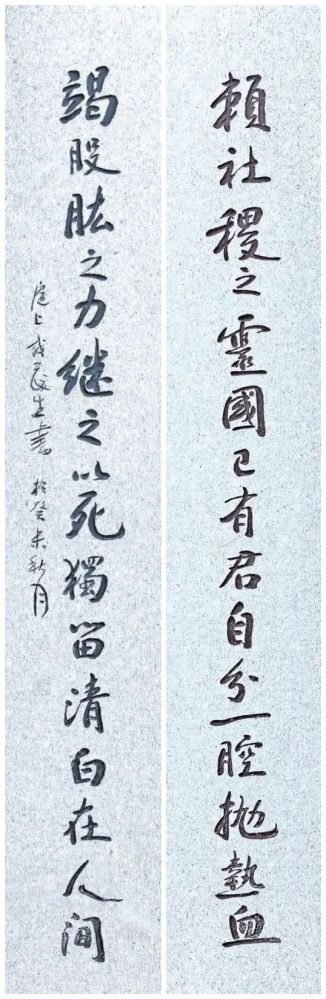 賴社稷之靈國已有君自分一腔抛熱血
竭股肱之力继之以死獨留清白在人间
滬上戎
生書 於癸未秋月